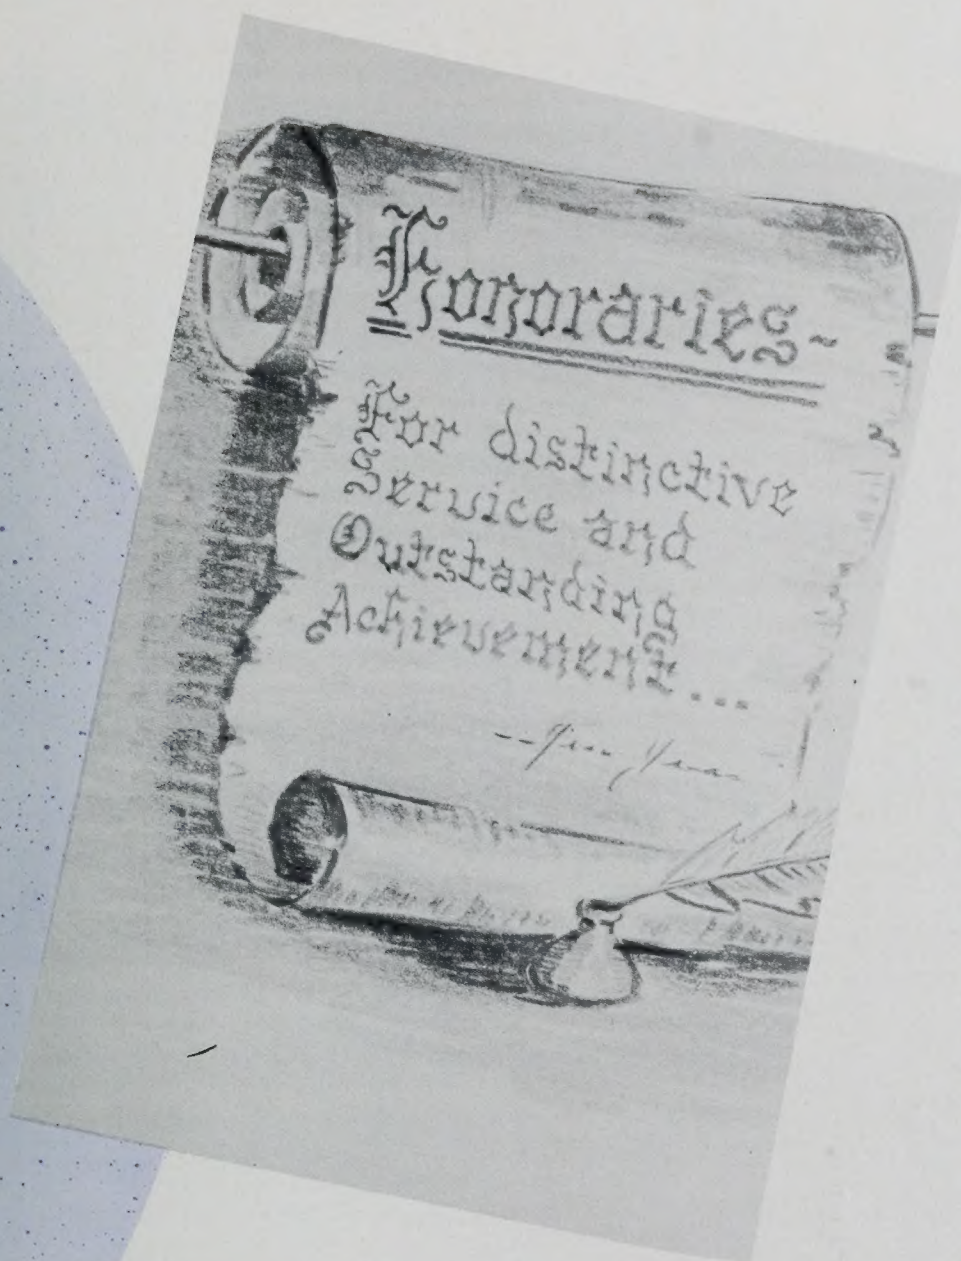 Honoraries~
For distinctive
Service and
Outstanding
Achievement...